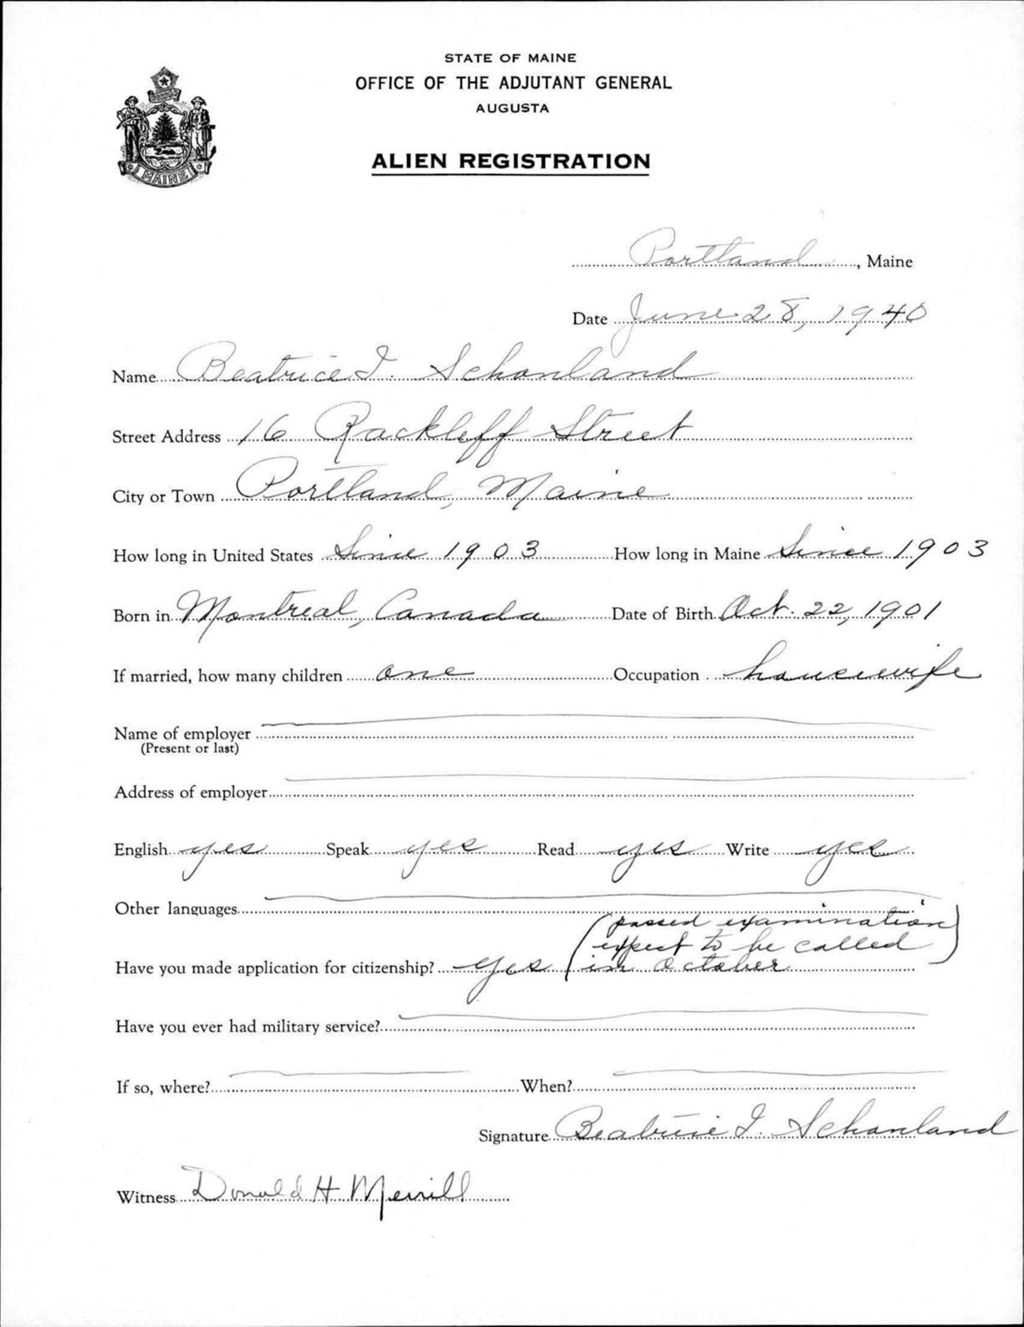 STATE OF MAINE
OFFICE OF THE ADJUTANT GENERAL
AUGUSTA
ALIEN REGISTRATION
MAINE
Portland, Maine
Date June 28, 1940
Name Beatrice I. Schonland
Street Address 16 Rackleff Street
City or Town Portland, Maine
How long in United States Since 1903 How long in Maine Since 1903
Born in Montreal, Canada Date of Birth Oct. 22, 1901
If married, how many children one Occupation housewife
Name of employer
(Present or last)
Address of employer
English yes Speak yes Read yes Write yes
Other languages
(passed examination
expect to be called
Have you made application for citizenship? yes in October)
Have you ever had military service?
If so, where? When?
Signature Beatrice I. Schonland
Witness Donald H Merrill